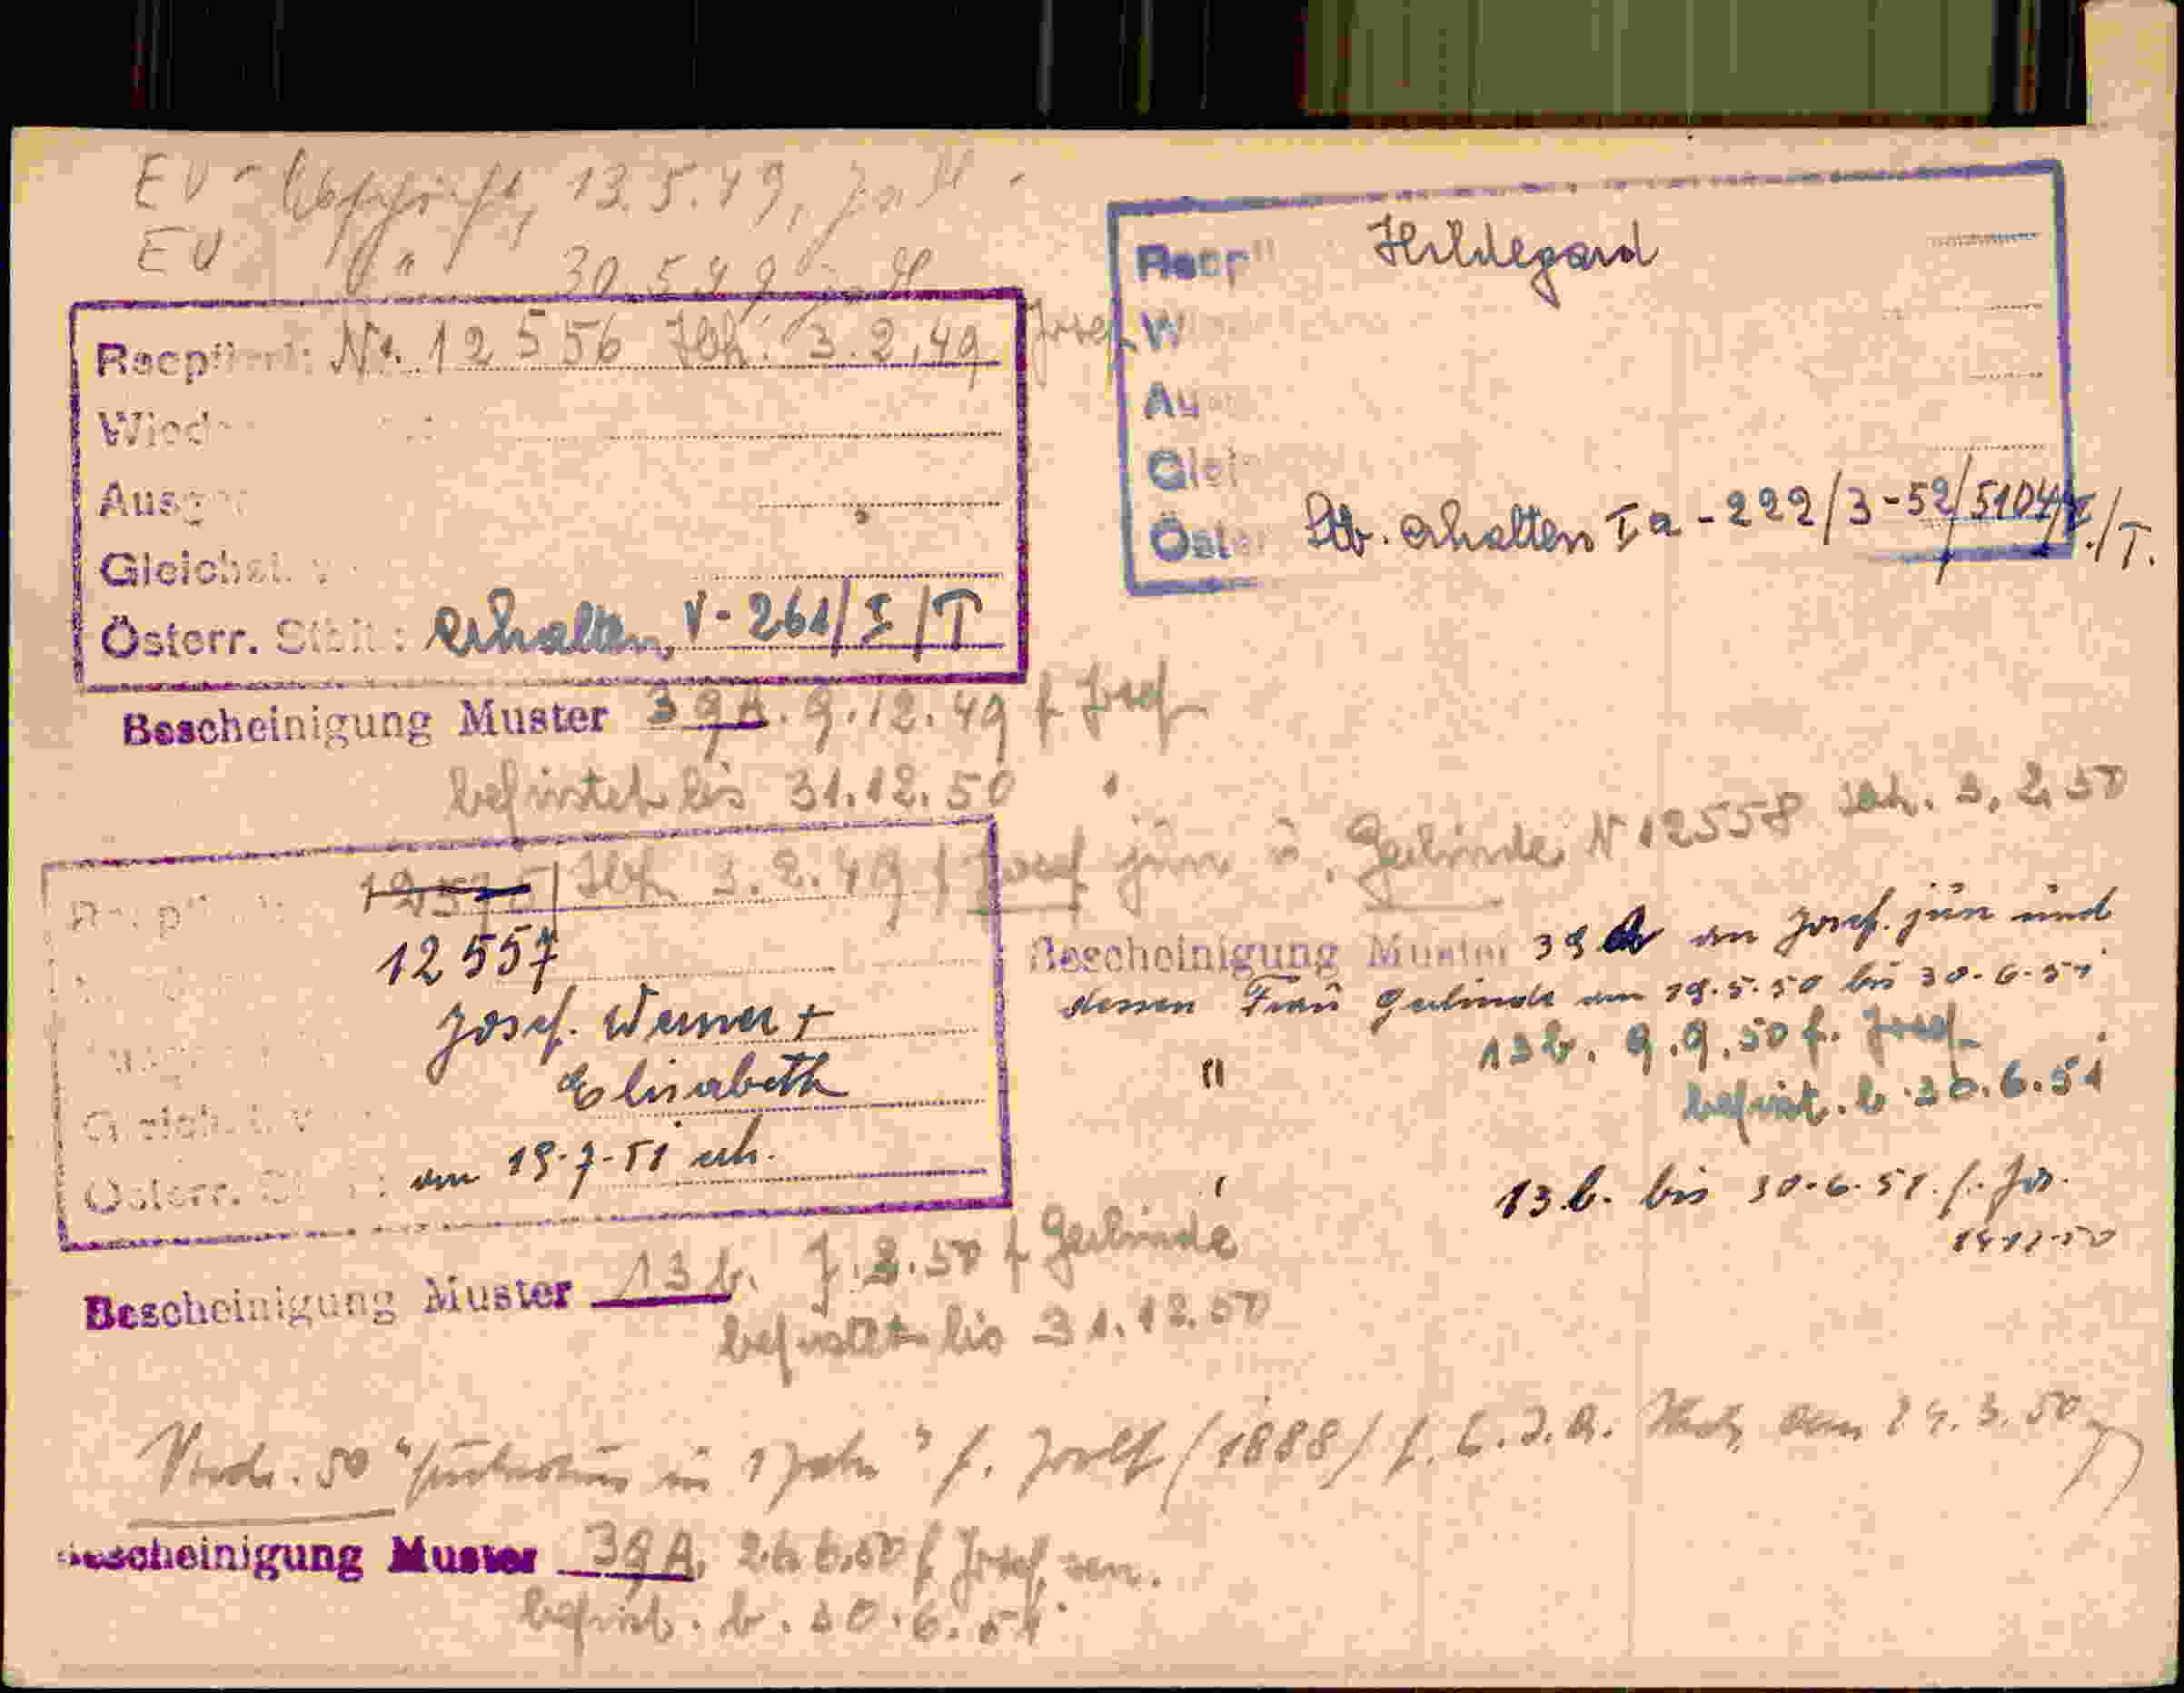 EV - Abschrift, 13.5.49,
EV " 30.5.49
Nr. 12556 Ibk. 3.2.49 Josef
Wied
Ausg
Gleichst.
Österr. Stbft: erhalten, V-261/I/T
Bescheinigung Muster 39A. 9.12.49 f Josef
befristet bis 31.12.50
Hildegard
W
Au
Glei
Öst Stb. erhalten Ia-222/3-52/5104/I./T.
12575 Ibk 3.2.49 f Josef jun u. Gerlinde N 12558 Ibk. 3.2.50
12557
Josef. Werner +
Elisabeth
Österr. am 19.7.51 erh.
Bescheinigung Muster 39 A an Josef. jun und
dessen Frau Gerlinde am 19.5.50 bis 30.6.51
" 13b. 9.9.50 f. Josef
befrist. b. 30.6.51
13b. bis 30.6.51. f. Jos.
14.12.50
Bescheinigung Muster 13b. 7.2.50 f Gerlinde
befristet bis 31.12.50
50 " in 1 Jahr " f. (1888) f. 24.3.50
Bescheinigung Muster 39A. 26.6.50 f Josef sen.
befrist. b. 30.6.51.